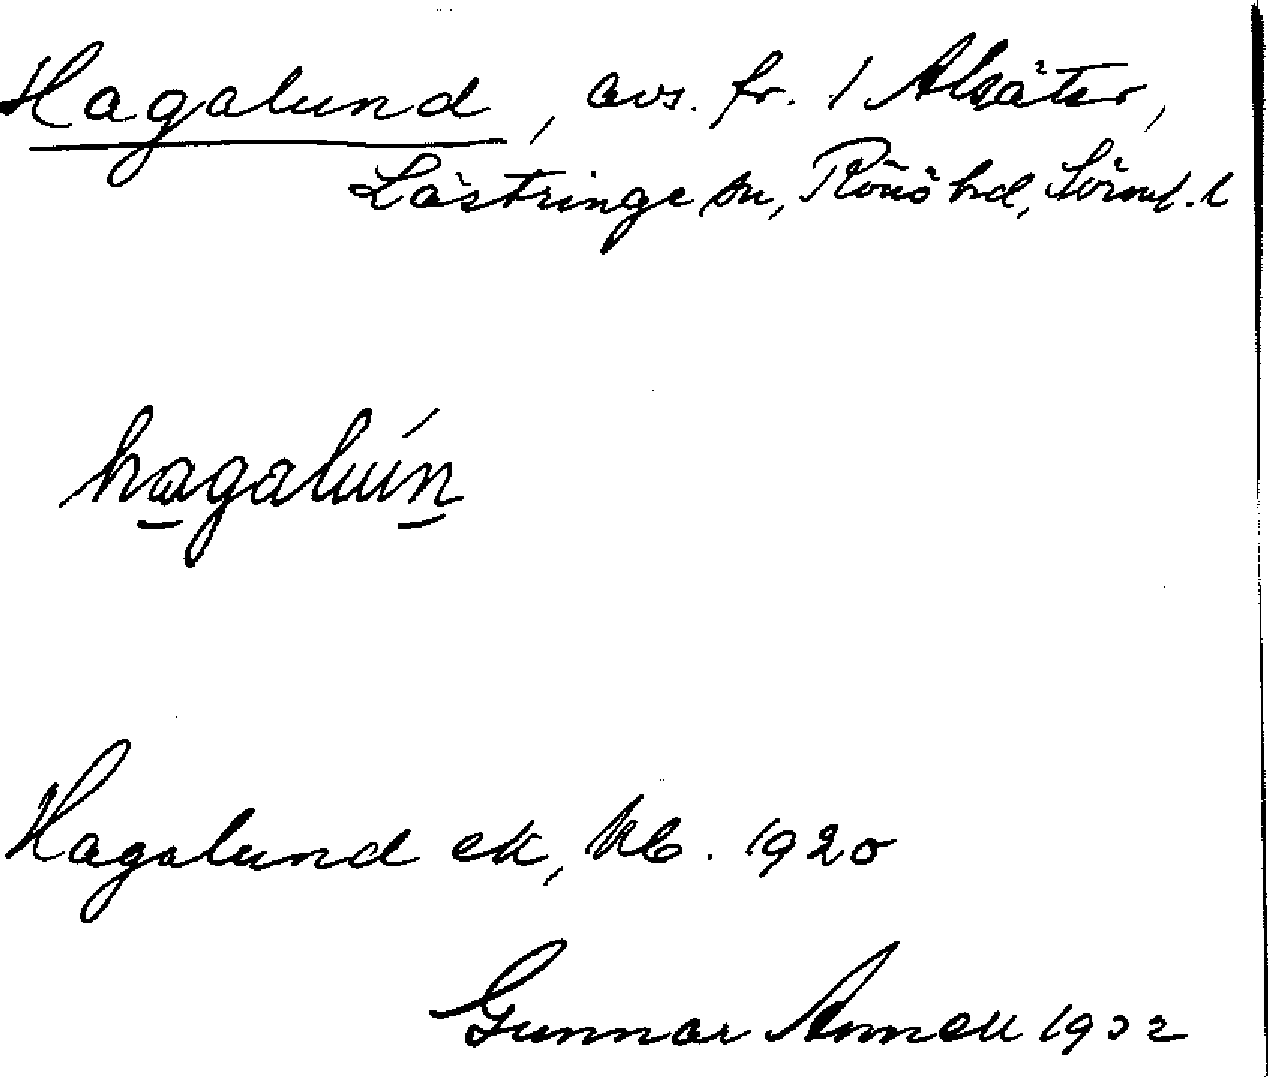 Hagalund, avs. fr. 1 Alsäter,
Lästringe sn, Rönö hd, Sörml. l
hagalún
Hagalund ek, kb. 1920
Gunnar Annell 1932